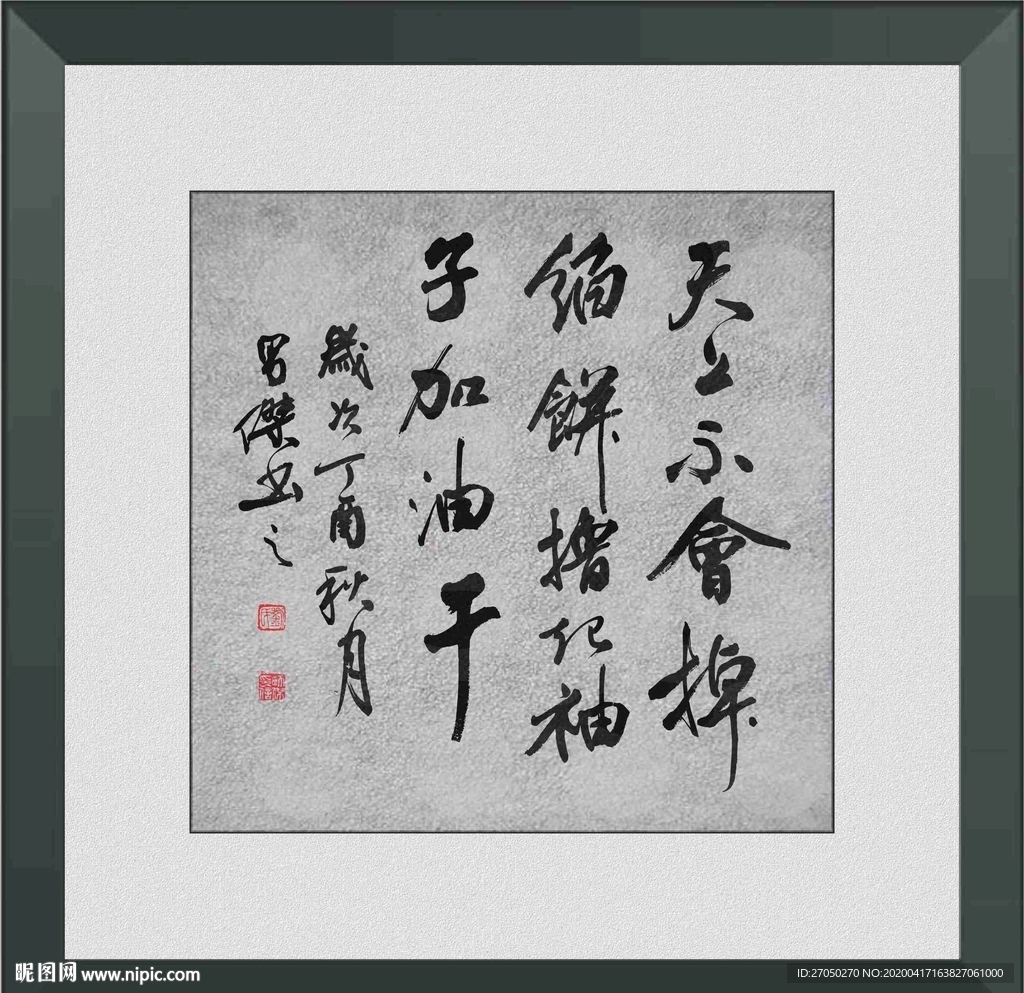 天上不會掉
餡餅擼起袖
子加油干
歲次丁酉秋月
男傑书之
昵图网 www.nipic.com
ID:27050270 NO:20200417163827061000